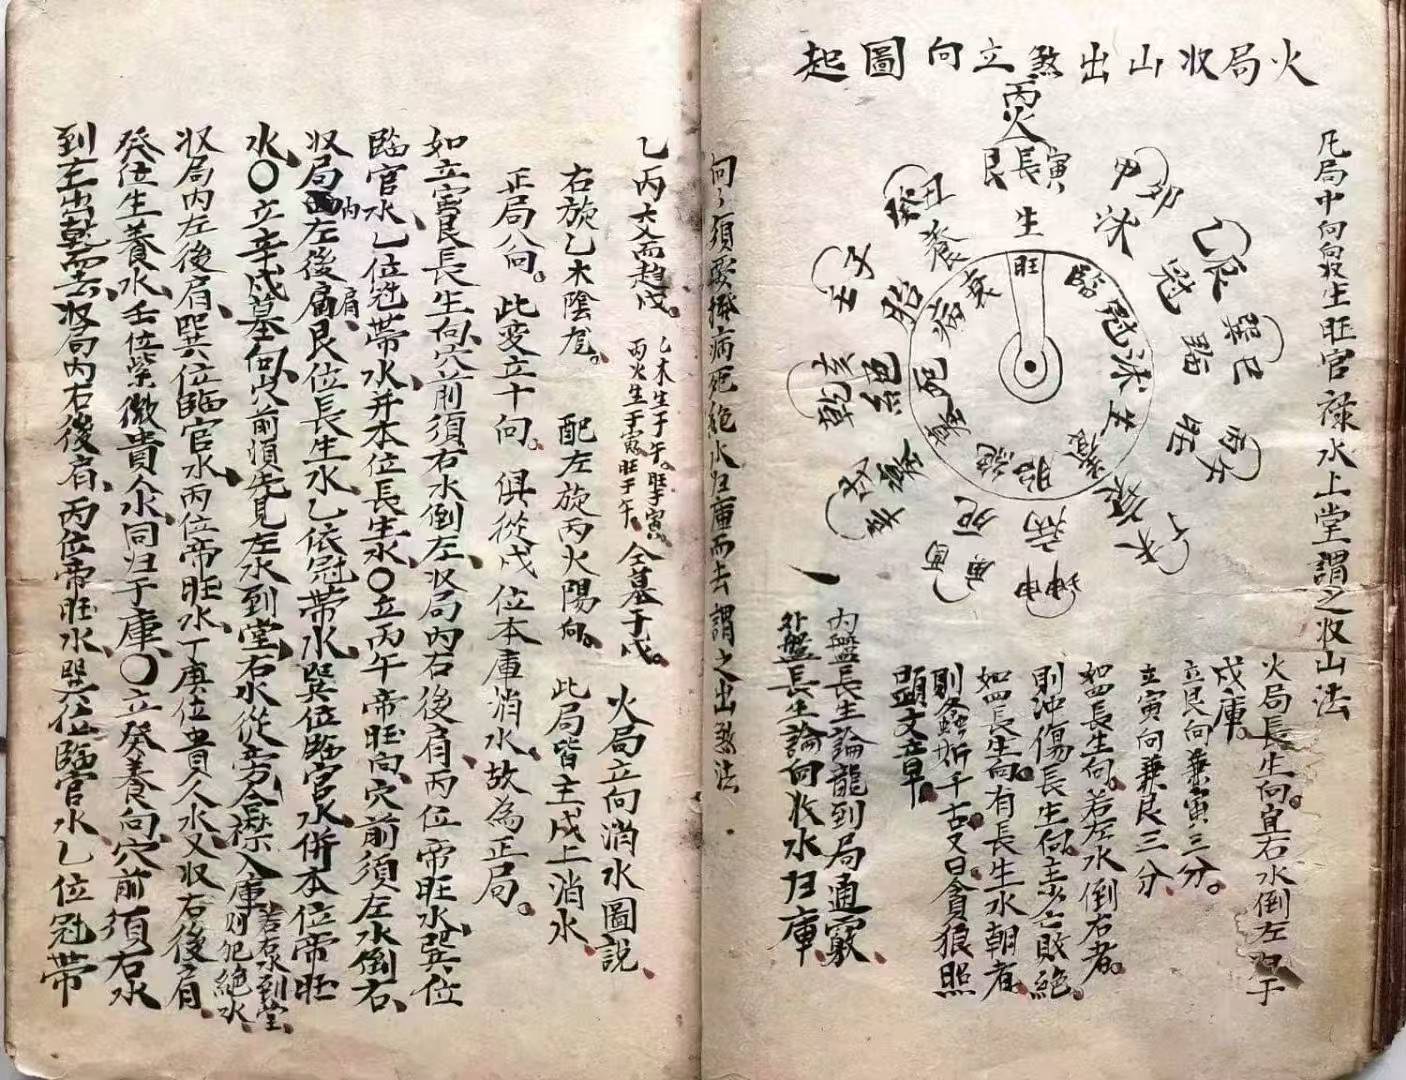 火局收山出煞立向圖起
凡局中向向收生旺官祿水上堂謂之收山法
丙火
艮長寅
生
甲卯
沐
乙辰
冠
巽巳
臨
丙午
旺
丁未
衰
坤申
病
庚酉
死
辛戌
墓
乾亥
絕
壬子
胎
癸丑
養
旺
臨
冠
沐
生
養
胎
絕
墓
死
病
衰
火局長生向宜右水倒左歸于
戌庫
立艮向兼寅三分
立寅向兼艮三分
如四長生向若左水倒右者
則沖傷長生向主少亡敗絕
如四長生向有長生水朝者
則螽斯千古又曰貪狼照
顯文章
內盤長生論龍到局通竅
外盤長生論向收水归庫
向向須要撥病死絕水归庫而去謂之出煞法
火局立向消水圖說
乙丙交而趨戌 乙木生于午旺于寅 丙火生于寅旺于午 仝墓于戌
右旋乙木陰龙 配左旋丙火陽向 此局皆主戌上消水
正局八向 此変立十向 俱從戌位本庫消水故為正局
如立寅艮長生向穴前須右水倒左收局內右後肩丙位帝旺水巽位
臨官水乙位冠帶水并本位長生水〇立丙午帝旺向穴前須左水倒右
収局內左後肩艮位長生水乙依冠帶水巽位臨官水併本位帝旺
水〇立辛戌墓向穴前須先見左水到堂右水從旁合襟入庫 若忝到堂 則犯絕水
収局內左後肩巽位臨官水丙位帝旺水丁庚位貴人水又収右後肩
癸位生養水壬位紫微貴人水同归于庫〇立癸養向穴前須右水
到左出乾而去収局內右後肩丙位帝旺水巽位臨官水乙位冠帶